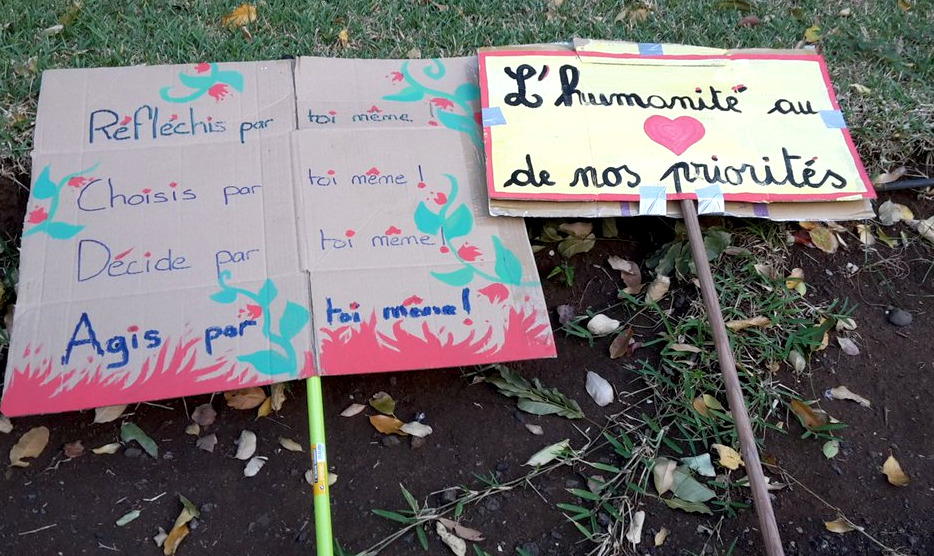 Réfléchis par toi même !
Choisis par toi même !
Décide par toi même !
Agis par toi même !
L'humanité au
de nos priorités